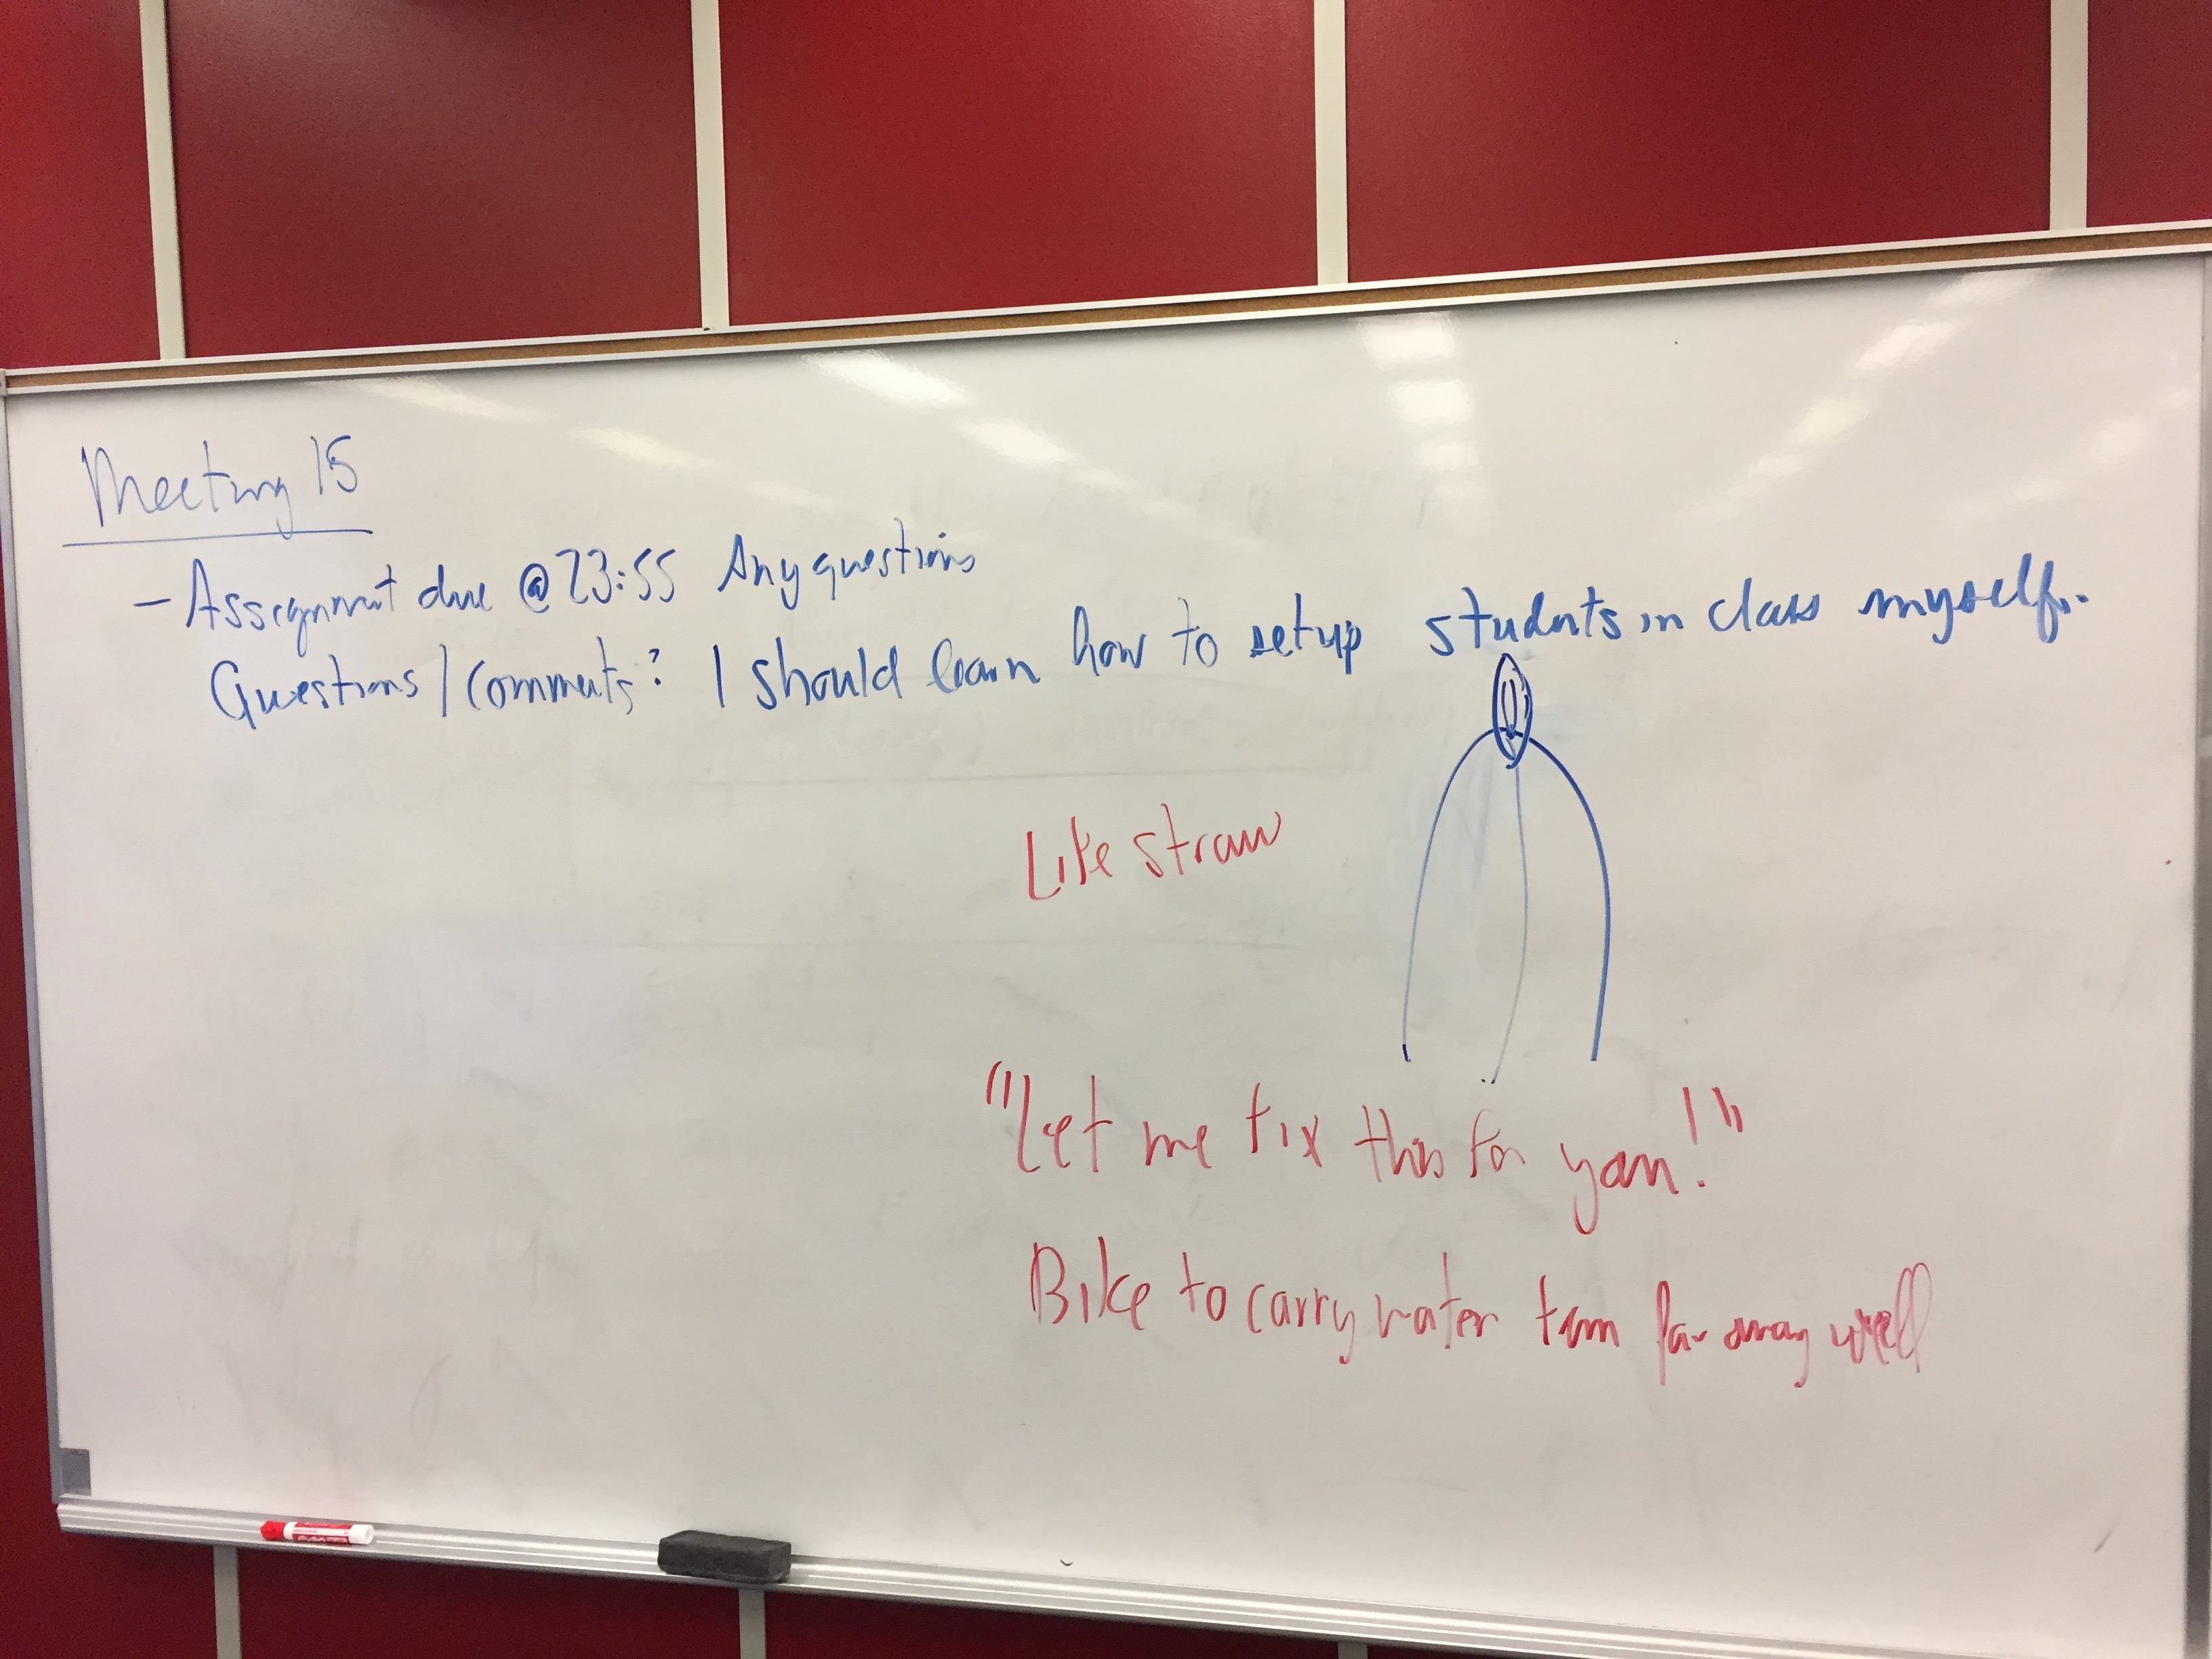 Meeting 15
- Assignment due @ 23:55 Any questions
Questions/Comments? I should learn how to setup students in class myself.
Like straw
"Let me fix this for you!"
Bike to carry water from far away well